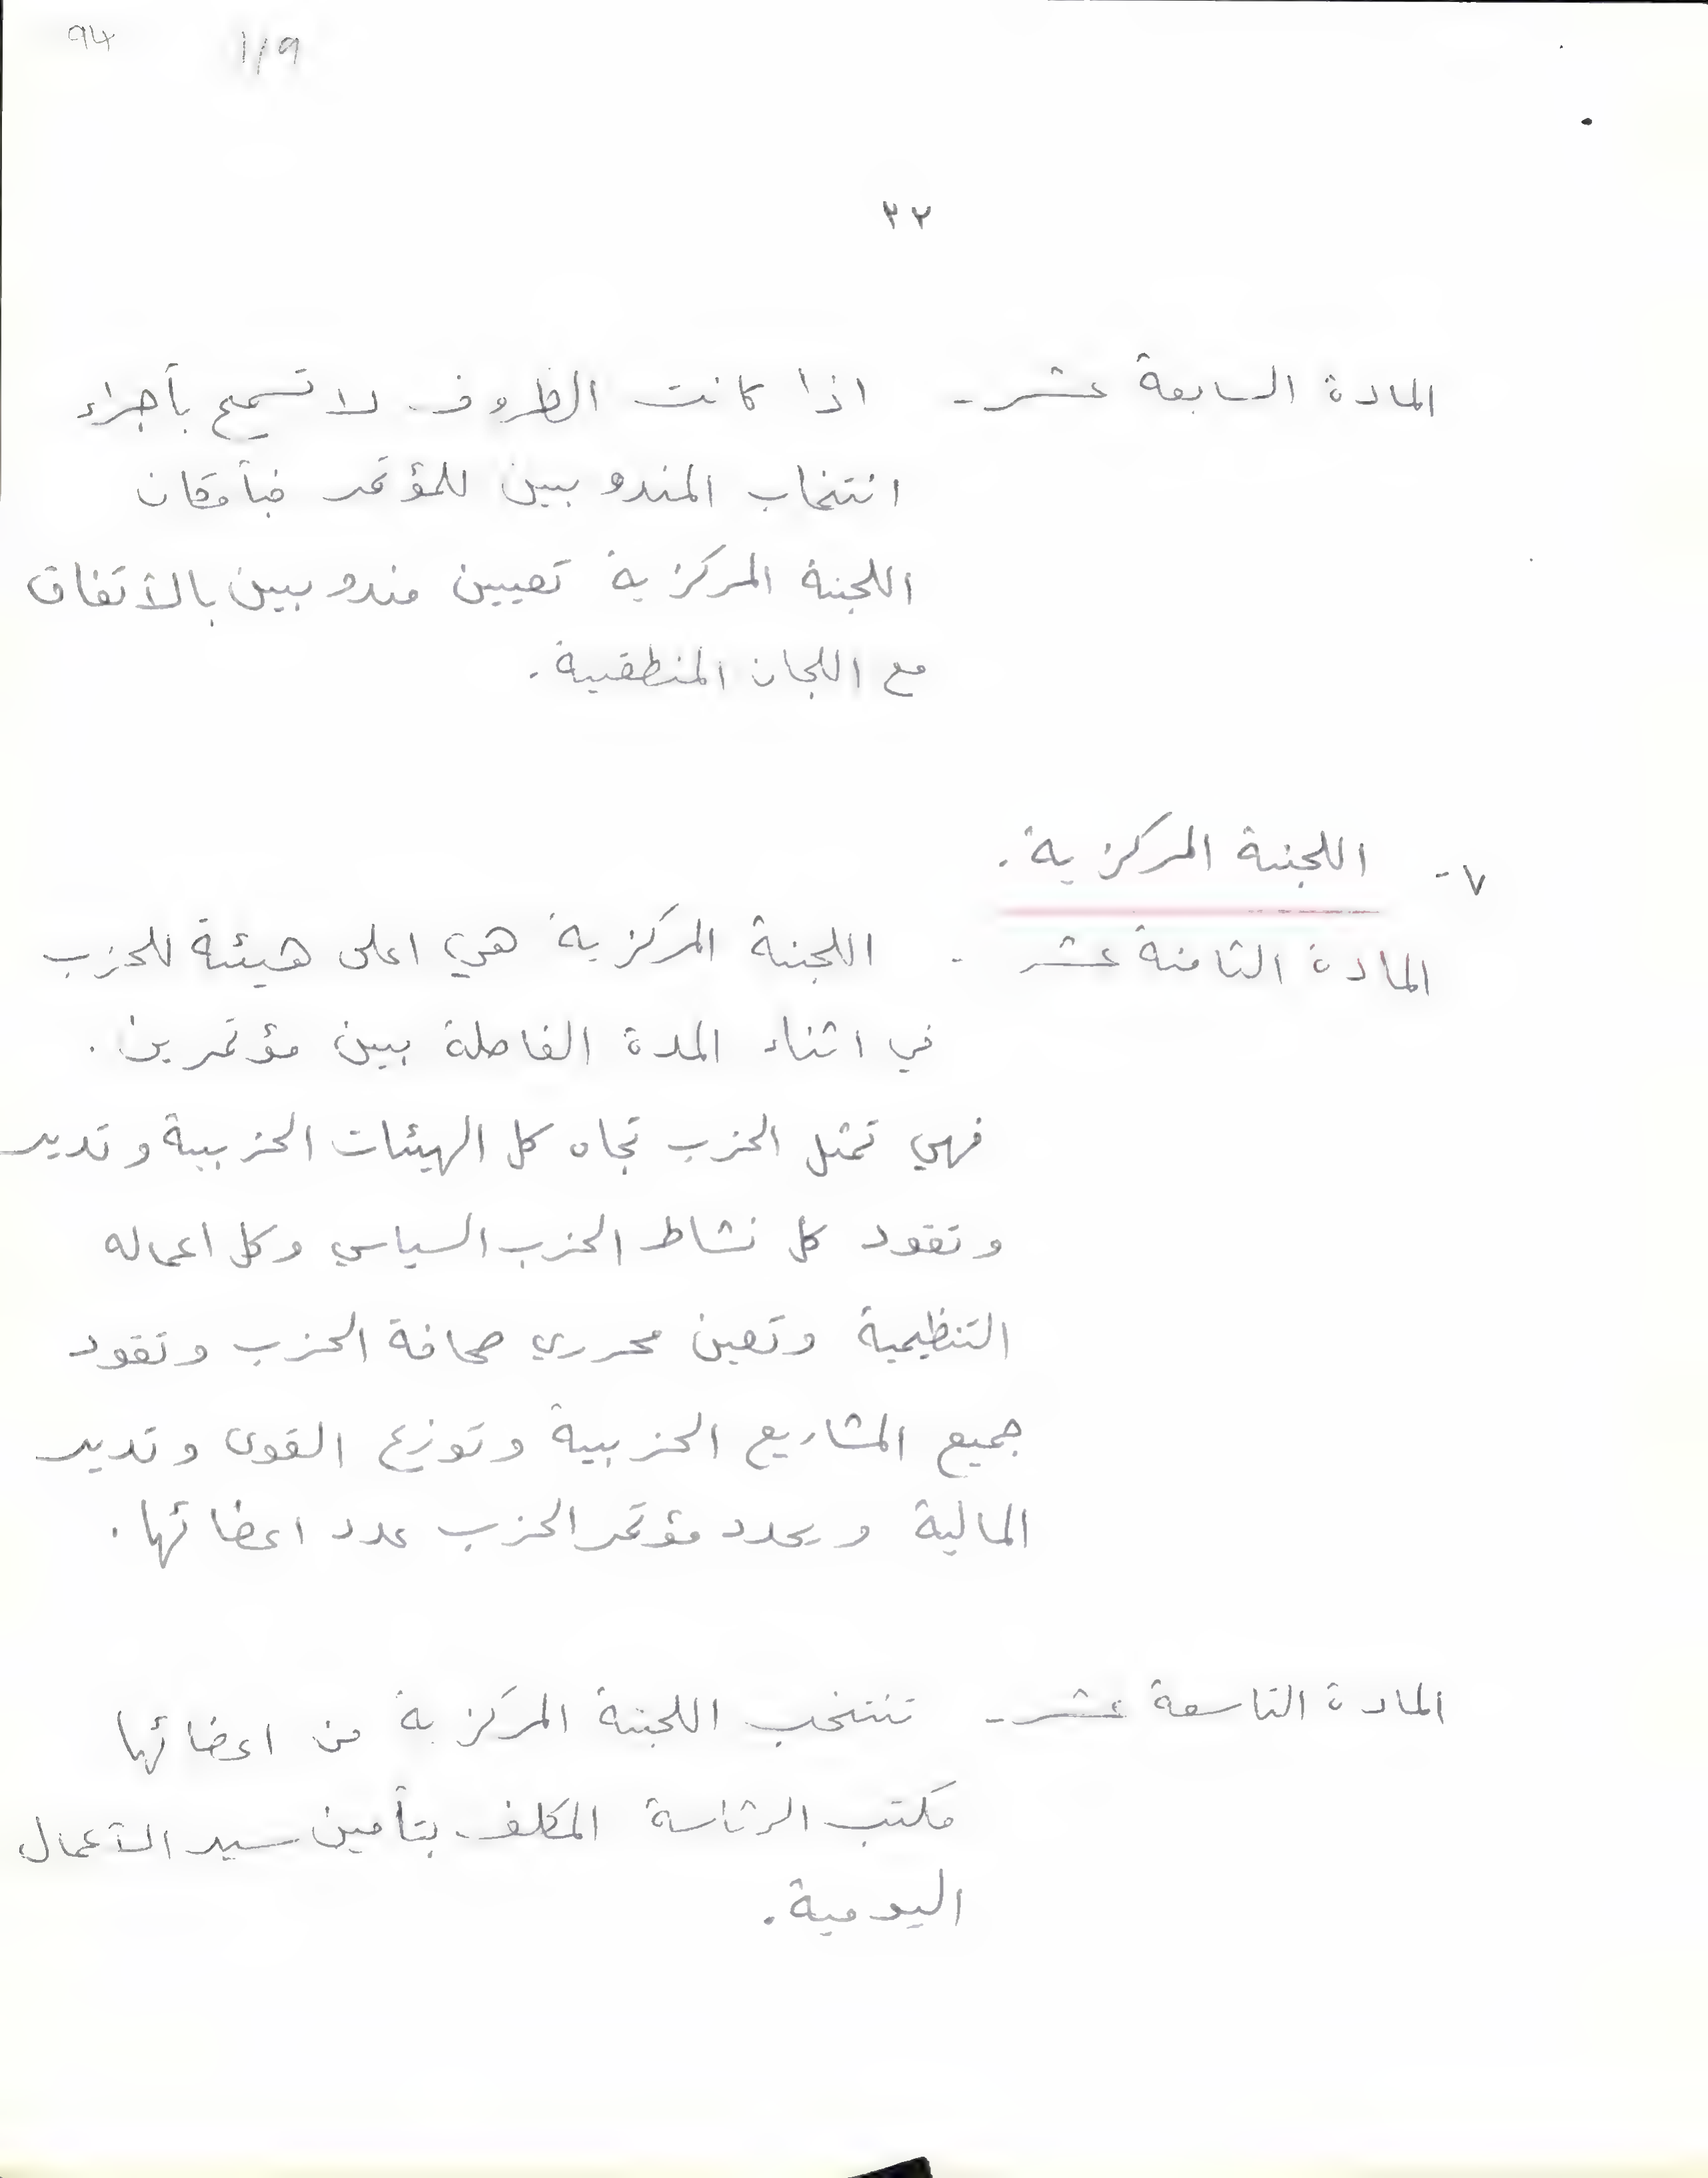 94 1/9
٣٢
المادة السابعة عشر - اذا كانت الظروف لا تسمح بأجراء
انتخاب المندوبين للمؤتمر فبأمكان
اللجنة المركزية تعيين مندوبين بالأتفاق
مع اللجان المنطقية .
٧- اللجنة المركزية .
المادة الثامنة عشر - اللجنة المركزية هي اعلى هيئة للحزب
في اثناء المدة الفاصلة بين مؤتمرين .
فهي تمثل الحزب تجاه كل الهيئات الحزبية وتدير
وتقود كل نشاط الحزب السياسي وكل اعماله
التنظيمية وتعين محرري صحافة الحزب وتقود
جميع المشاريع الحزبية وتوزع القوى وتدير
المالية ويحدد مؤتمر الحزب عدد اعضائها .
المادة التاسعة عشر - تنتخب اللجنة المركزية من اعضائها
مكتب الرئاسة المكلف بتأمين سير الأعمال
اليومية .